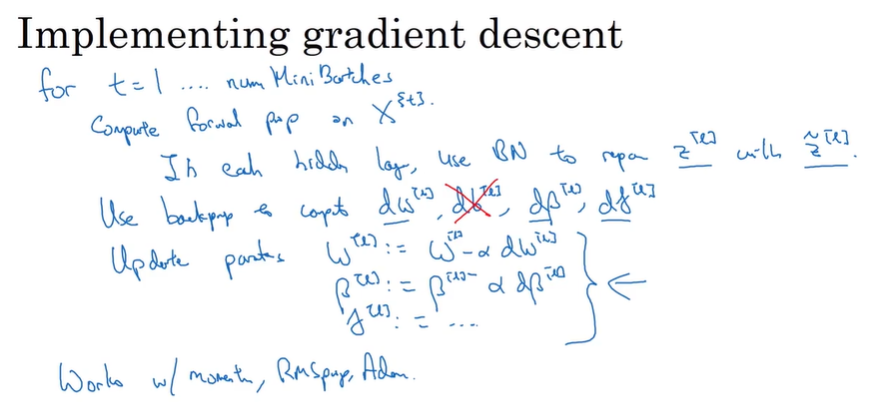 Implementing gradient descent
for t = 1 .... num Mini Batches
Compute forward prop on X^{t}.
In each hidden lay, use BN to repar z^[l] with z̃^[l].
Use backprop to comput dw^[l], db^[l], dβ^[l], dγ^[l]
Update partes w^[l] := w^[l] - α dw^[l]
β^[l] := β^[l] - α dβ^[l]
γ^[l] := ....
Works w/ moment, RMSprop, Adam.